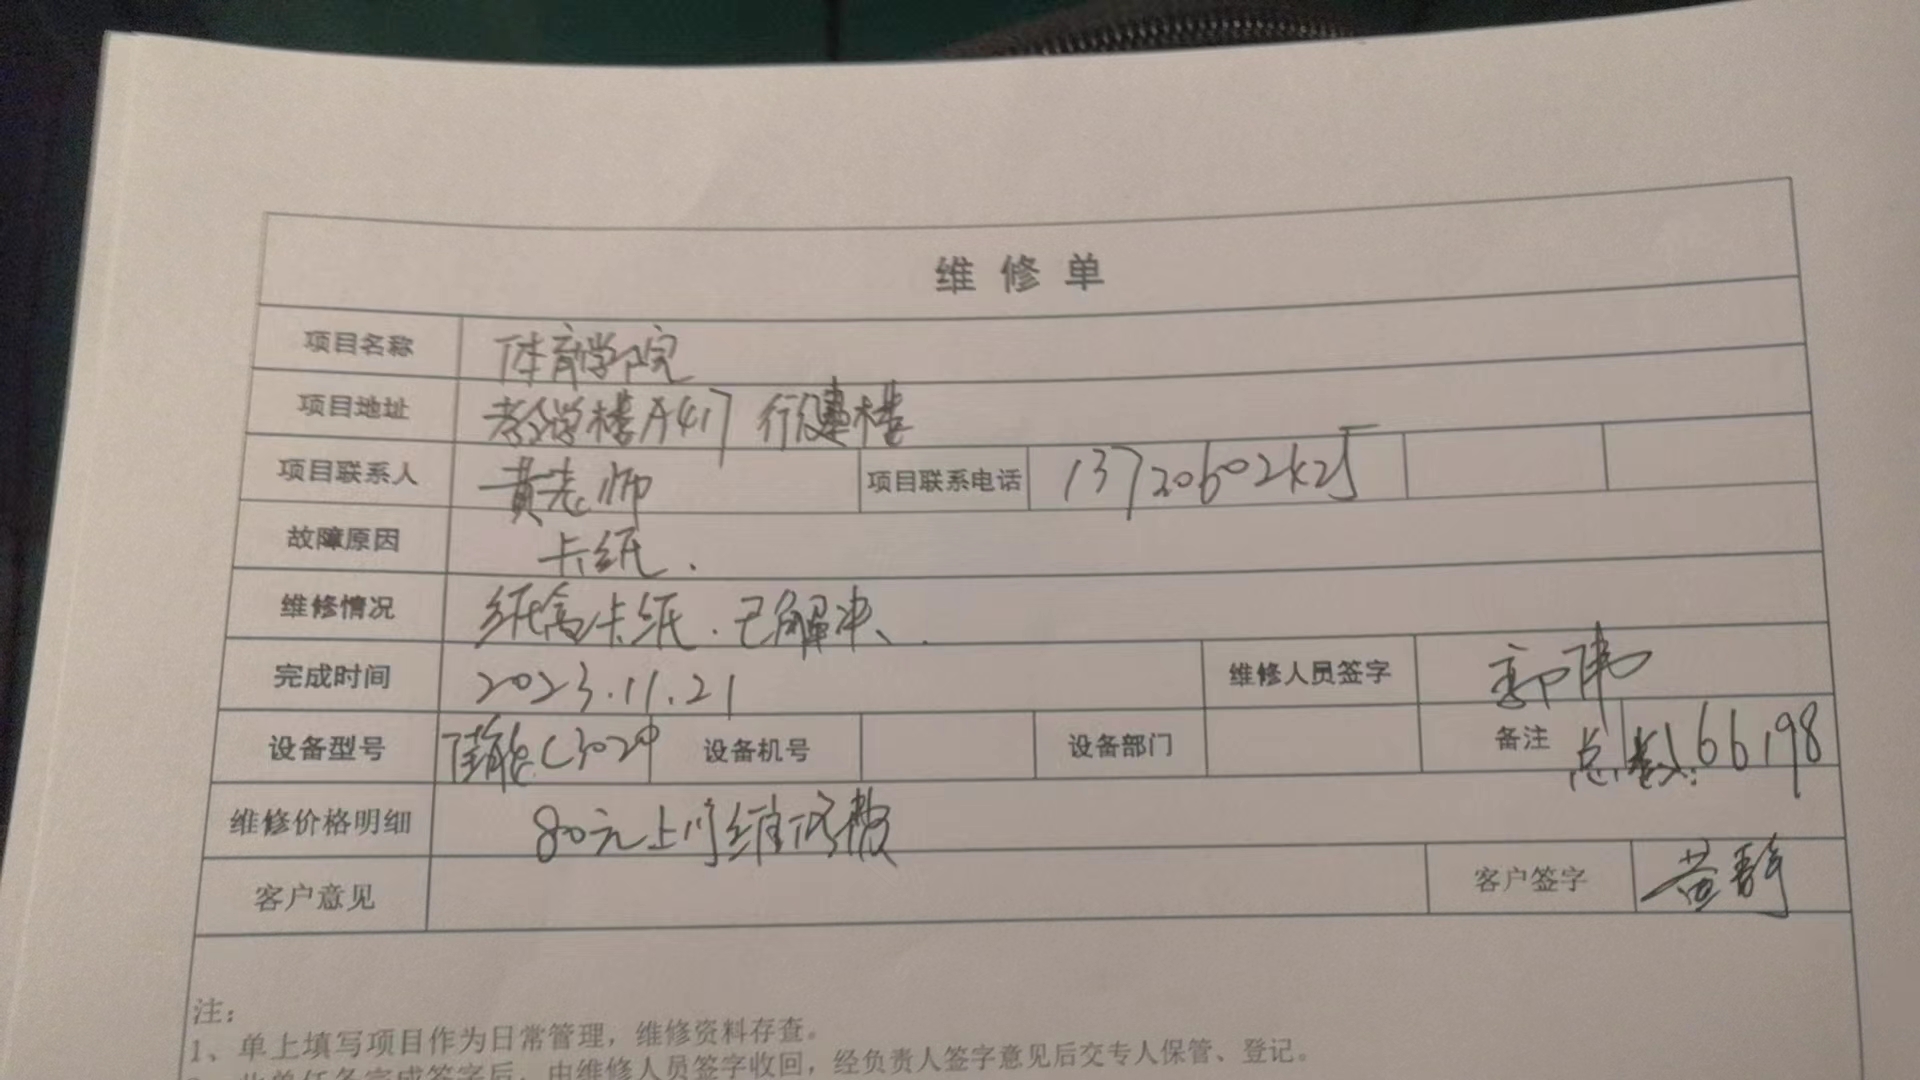 维修单
项目名称 体育学院
项目地址 教学楼A417 行健楼
项目联系人 黄老师 项目联系电话
故障原因 卡纸.
维修情况 纸盒卡纸.已解决.
完成时间 2023.11.21 维修人员签字 郭伟
设备型号 佳能C3020 设备机号 设备部门 备注 总数:66198
维修价格明细 80元上门维修费
客户意见 客户签字 黄
注:
1、单上填写项目作为日常管理，维修资料存查。
此单任务完成签字后，由维修人员签字收回，经负责人签字意见后交专人保管、登记。